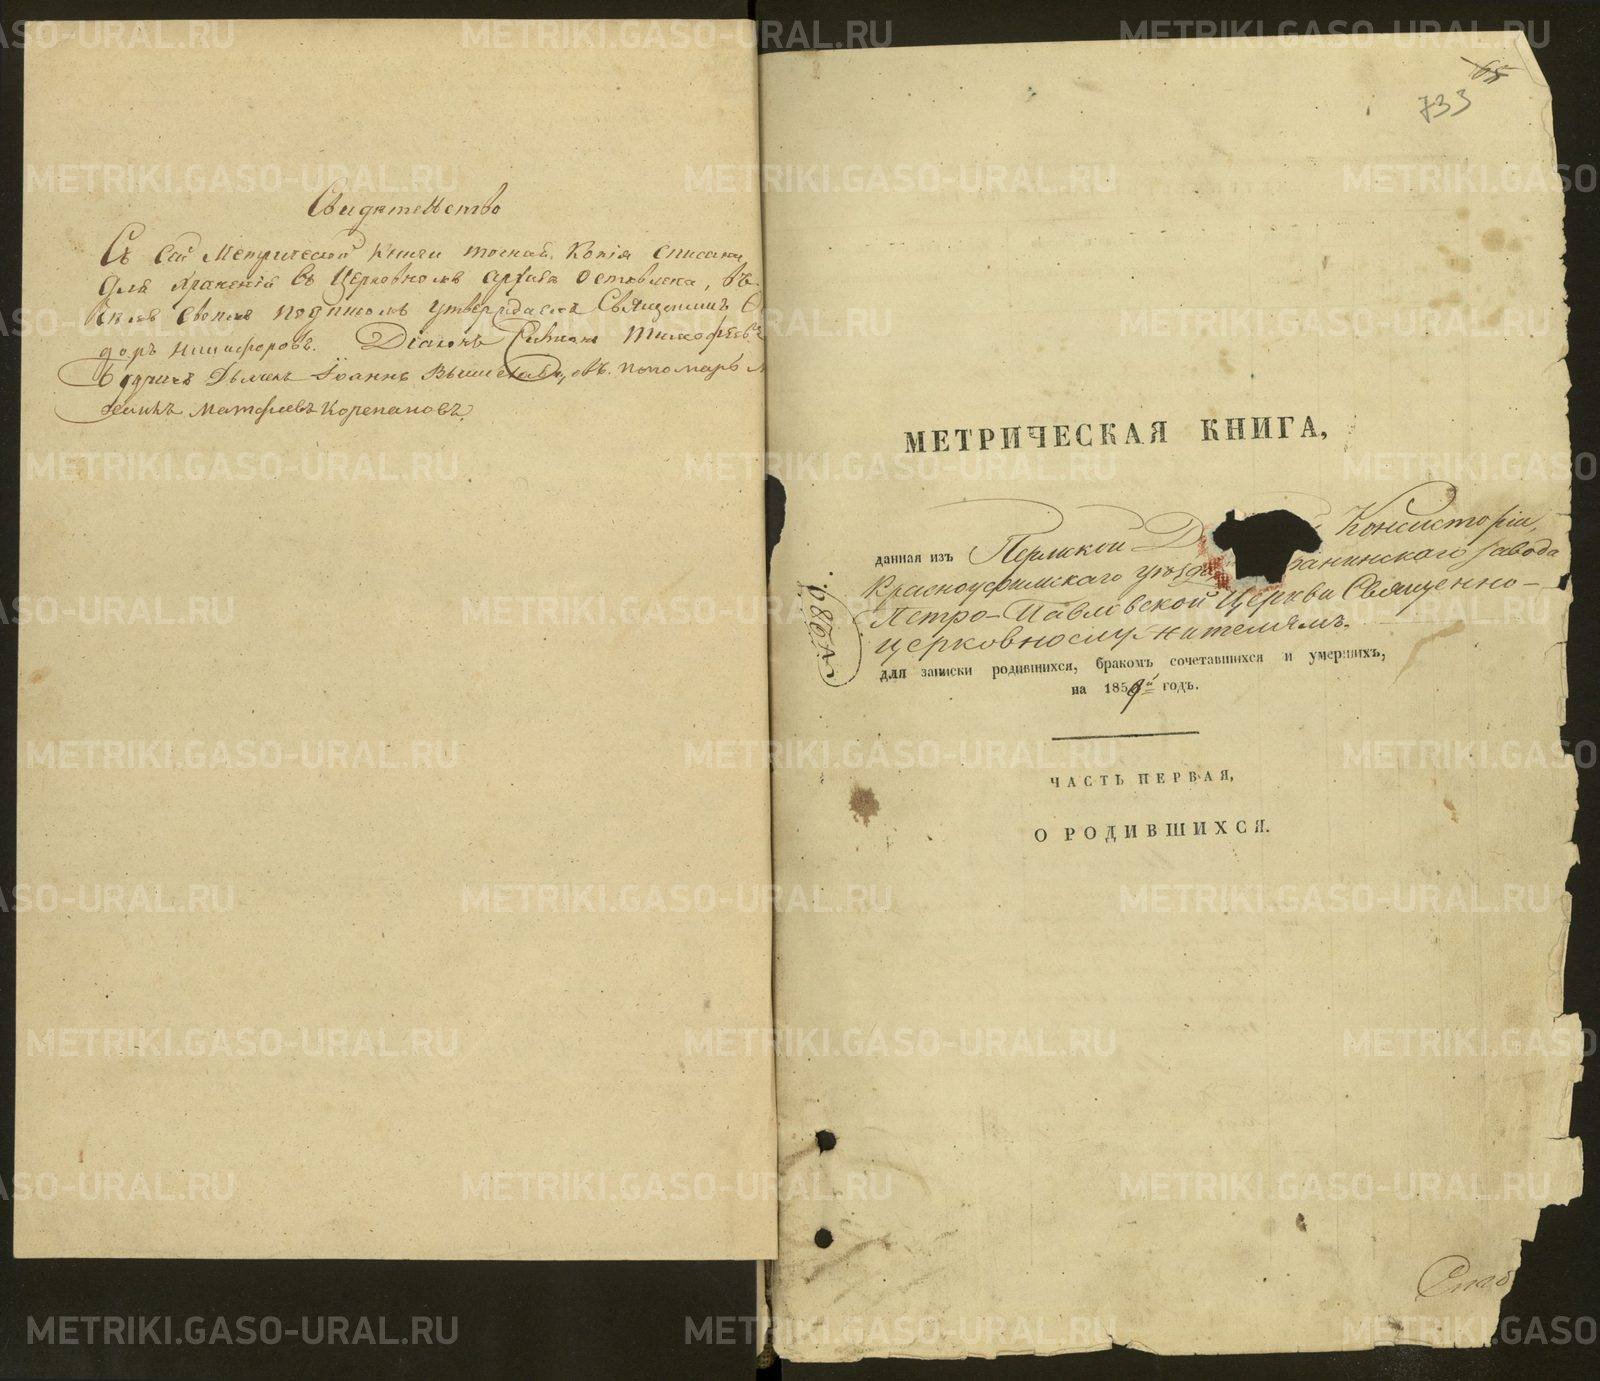 Свидѣтельство
Съ сей Метрической Книги точная Копія списана
для храненія въ Церковномъ архивѣ оставлена, въ
чемъ своимъ подписомъ утверждаемъ Священникъ
доръ Никифоровъ. Діаконъ Тимофеевъ
Дьячекъ Іоаннъ пономарь
Матфѣевъ Корепановъ.
65
733
МЕТРИЧЕСКАЯ КНИГА,
данная изъ Пермской Д Консисторіи,
Красноуфимскаго уѣзда ранинскаго завода
Петро-Павловской Церкви Священно-
церковнослужителямъ.
для записки родившихся, бракомъ сочетавшихся и умершихъ,
на 1859й годъ.
ЧАСТЬ ПЕРВАЯ,
О РОДИВШИХСЯ.
METRIKI.GASO-URAL.RU